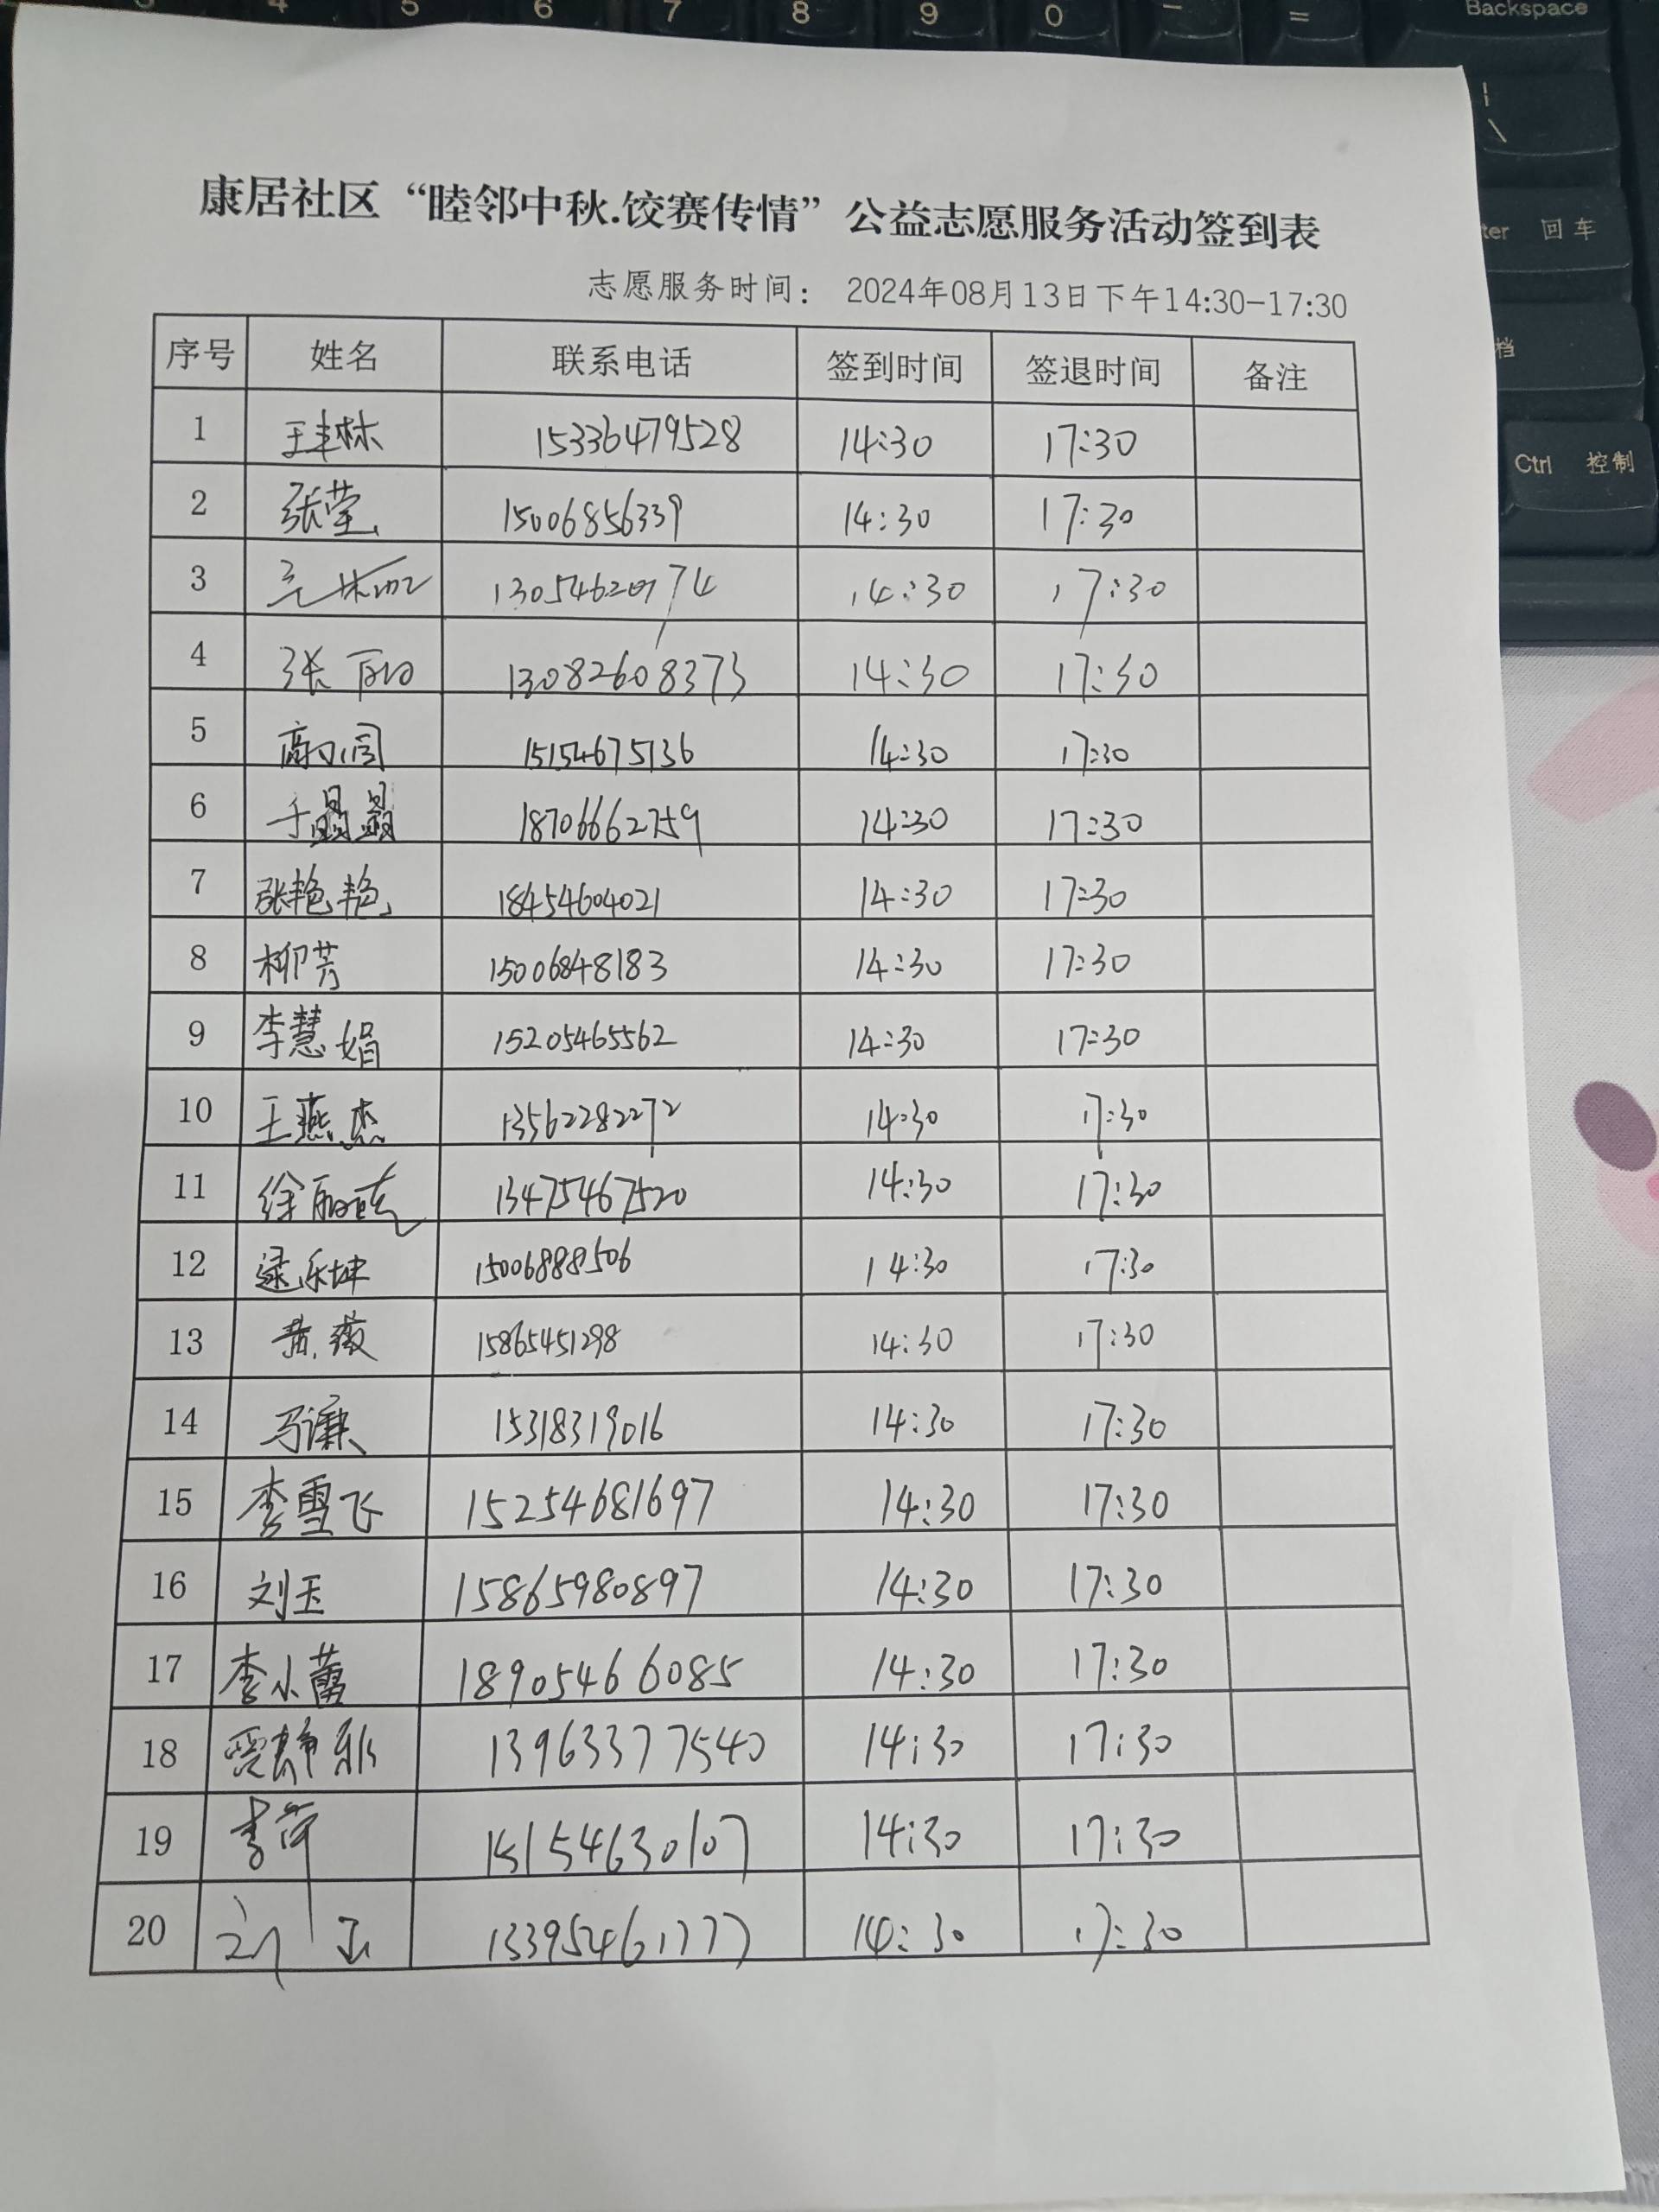 康居社区“睦邻中秋.饺赛传情”公益志愿服务活动签到表
志愿服务时间： 2024年08月13日下午14:30-17:30
序号 姓名 联系电话 签到时间 签退时间 备注
1 王丰林 15336479528 14:30 17:30
2 张莹 15006856339 14:30 17:30
3 14:30 17:30
4 张丽 13082608373 14:30 17:30
5 15154675136 14:30 17:30
6 于晶晶 18706662759 14:30 17:30
7 张艳艳 18454604021 14:30 17:30
8 柳芳 15006848183 14:30 17:30
9 李慧娟 15205465562 14:30 17:30
10 王燕杰 13562282272 14:30 17:30
11 徐丽 13475467520 14:30 17:30
12 逯乐坤 15006888506 14:30 17:30
13 黄薇 15865451298 14:30 17:30
14 马谦 15318319016 14:30 17:30
15 李雪飞 15254681697 14:30 17:30
16 刘玉 15865980897 14:30 17:30
17 李小蕾 18905466085 14:30 17:30
18 贾静雅 13963377540 14:30 17:30
19 李荷 15154630107 14:30 17:30
20 13395461777 14:30 17:30
4 5 6 7 8 9 0 - = Backspace
\
回车
档
Ctrl 控制